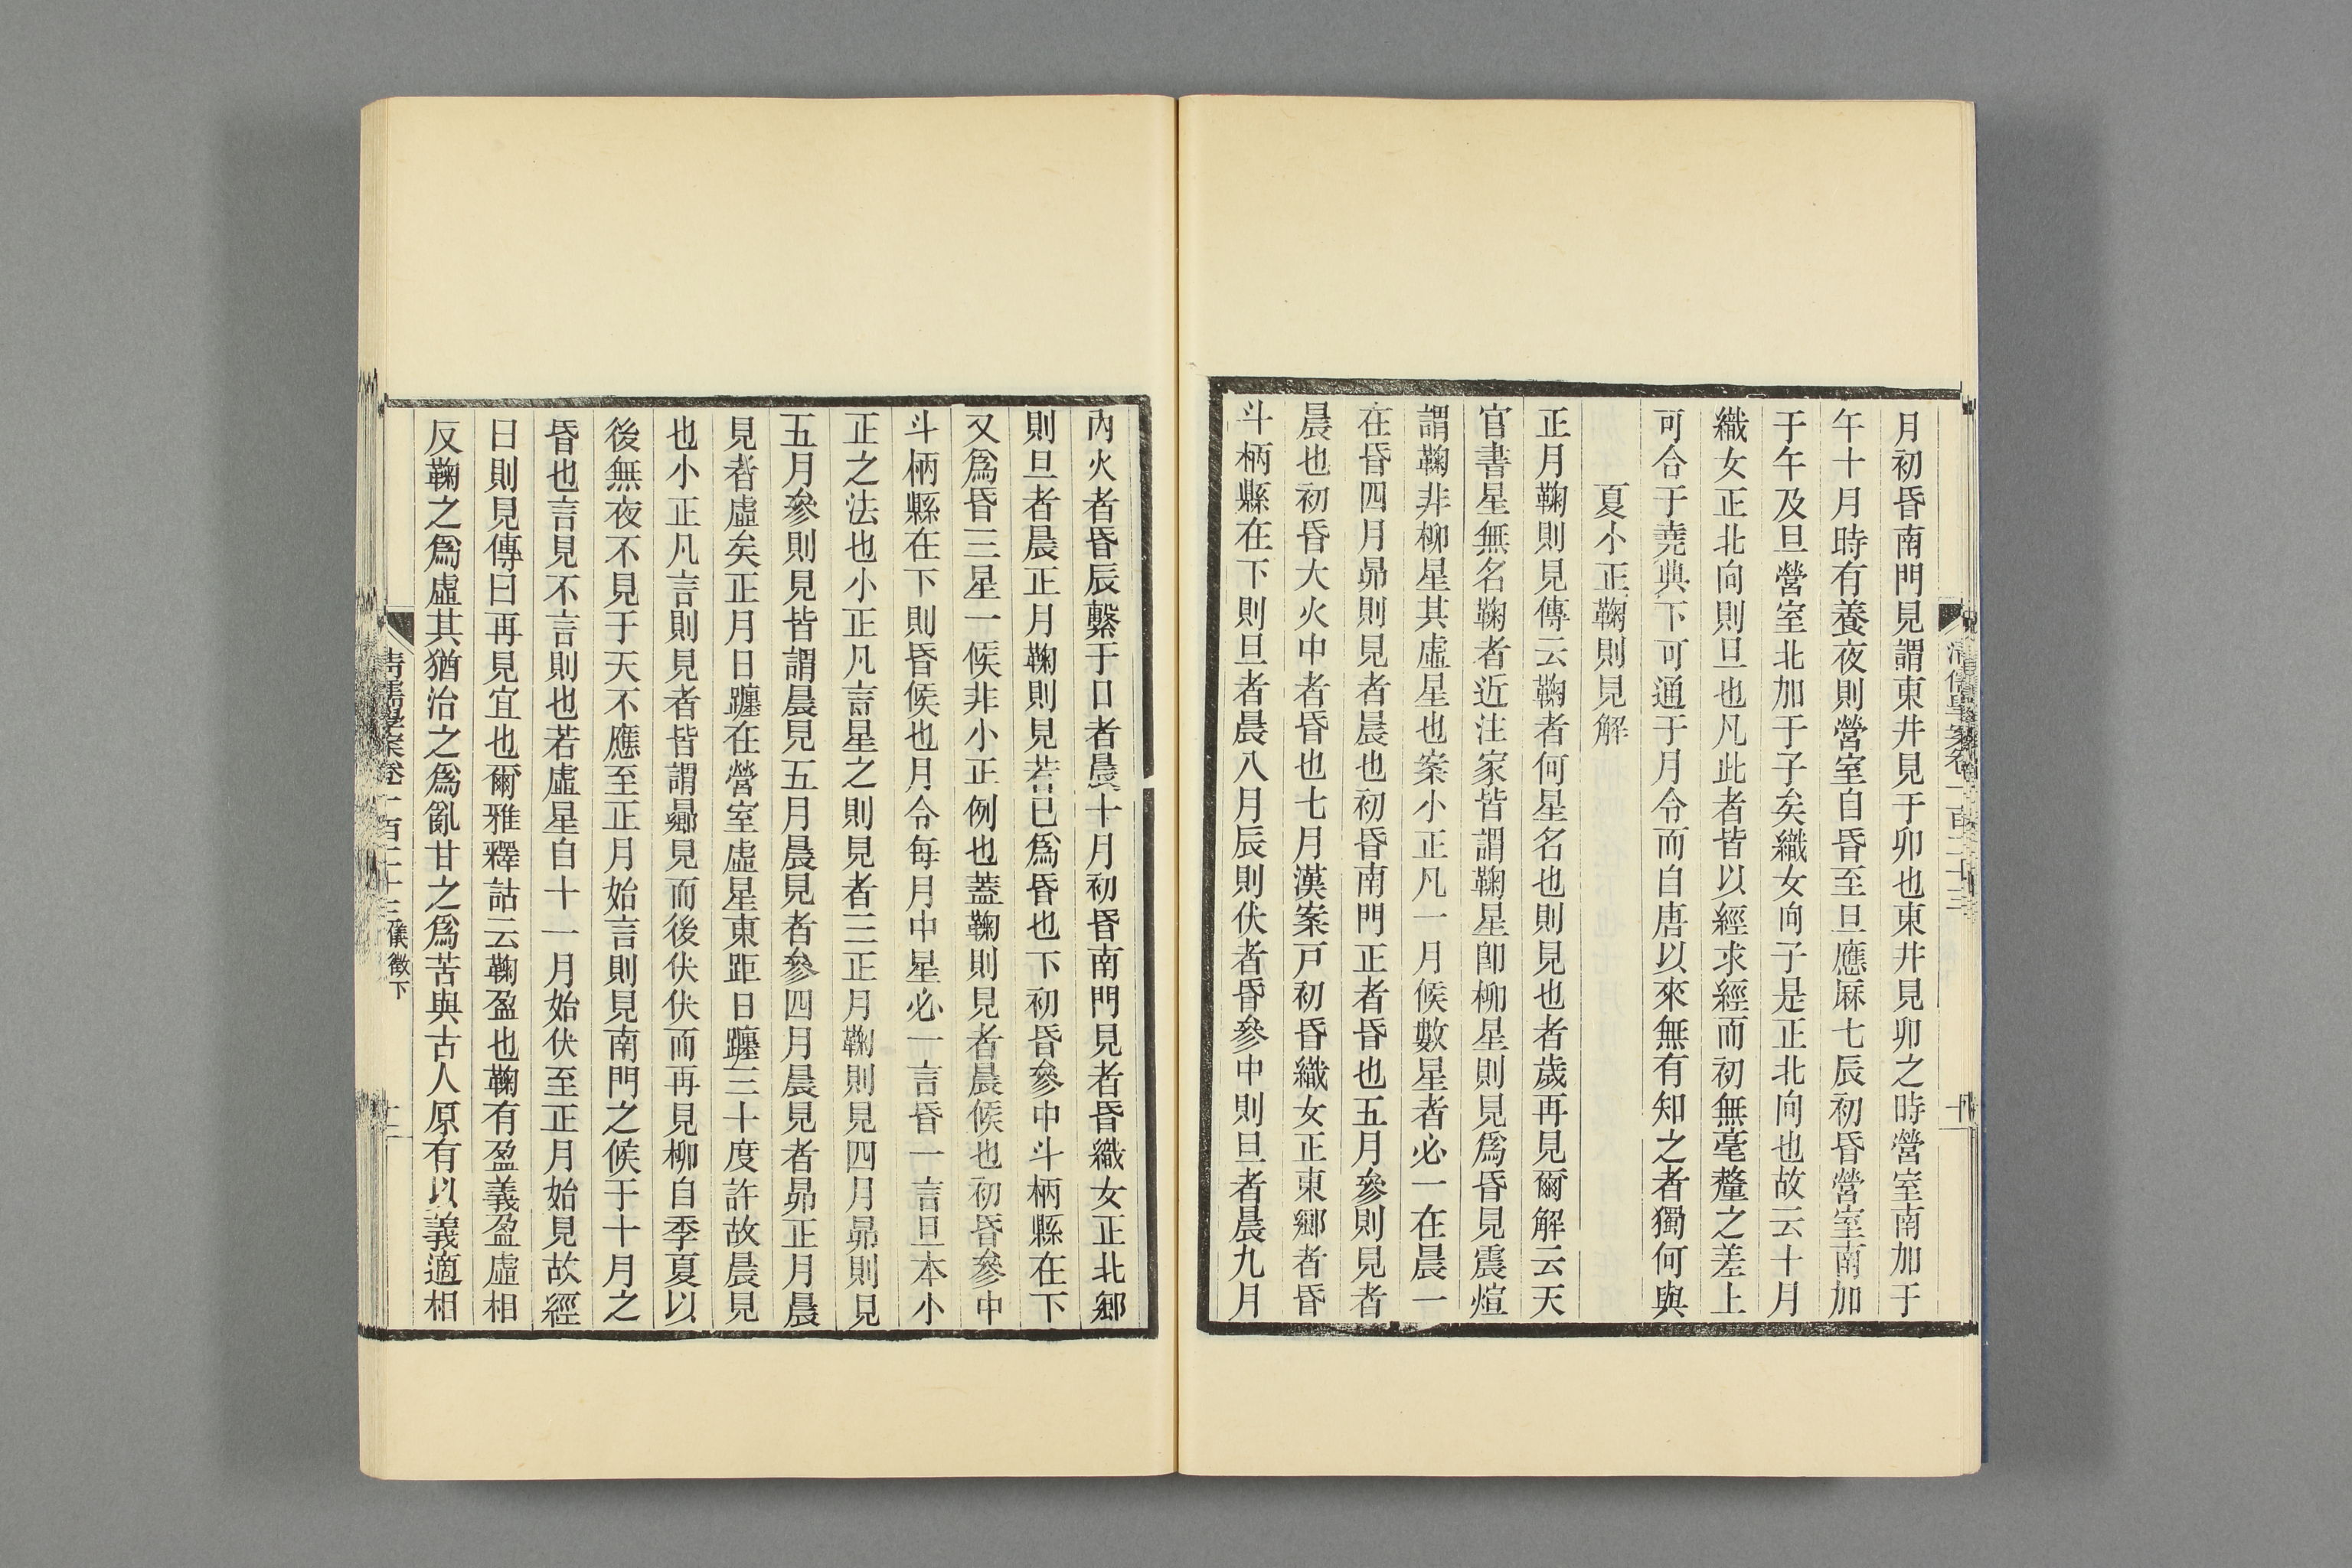 月初昏南門見謂東井見于卯也東井見卯之時營室南加于
午十月時有養夜則營室自昏至旦應厤七辰初昏營室南加
于午及旦營室北加于子矣織女向子是正北向也故云十月
織女正北向則旦也凡此者皆以經求經而初無毫釐之差上
可合于堯典下可通于月令而自唐以來無有知之者獨何與
夏小正鞠則見解
正月鞠則見傳云鞠者何星名也則見也者歲再見爾解云天
官書星無名鞠者近注家皆謂鞠星卽柳星則見爲昏見震煊
謂鞠非柳星其虛星也案小正凡一月候數星者必一在晨一
在昏四月昴則見者晨也初昏南門正者昏也五月參則見者
晨也初昏大火中者昏也七月漢案戸初昏織女正東鄉者昏
斗柄縣在下則旦者晨八月辰則伏者昏參中則旦者晨九月
內火者昏辰繫于日者晨十月初昏南門見者昏織女正北鄉
則旦者晨正月鞠則見若已爲昏也下初昏參中斗柄縣在下
又爲昏三星一候非小正例也蓋鞠則見者晨候也初昏參中
斗柄縣在下則昏候也月令每月中星必一言昏一言旦本小
正之法也小正凡言星之則見者三正月鞠則見四月昴則見
五月參則見皆謂晨見五月晨見者參四月晨見者昴正月晨
見者虛矣正月日躔在營室虛星東距日躔三十度許故晨見
也小正凡言則見者皆謂曏見而後伏伏而再見柳自季夏以
後無夜不見于天不應至正月始言則見南門之候于十月之
昏也言見不言則也若虛星自十一月始伏至正月始見故經
曰則見傳曰再見宜也爾雅釋詁云鞠盈也鞠有盈義盈虛相
反鞠之爲虛其猶治之爲亂甘之爲苦與古人原有以義適相
清儒學案卷一百二十三儀徵下